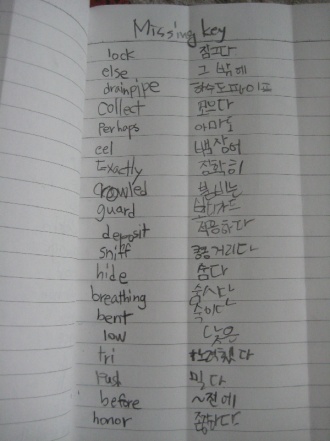 Missing key
lock 잠그다
else 그 밖에
drainpipe 하수도 파이프
collect 모으다
Perhaps 아마도
eel 뱀장어
Exactly 정확히
growled
guard
deposit
sniff 킁킁거리다
hide 숨다
breathing
bent 숙이다
low 낮은
tri
rush 밀다
before ~전에
honor